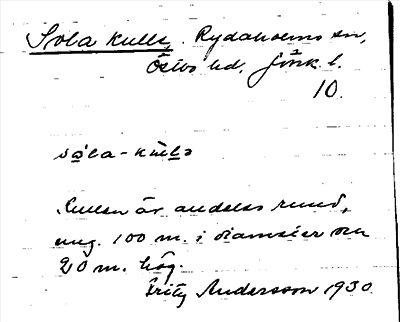 Sola kulle, Rydaholms sn,
Östbo hd, Jönk l.
10.
Kullen är alldeles rund,
ung. 100 m. i diameter och
20 m. hög.
Fritz Andersson 1930.